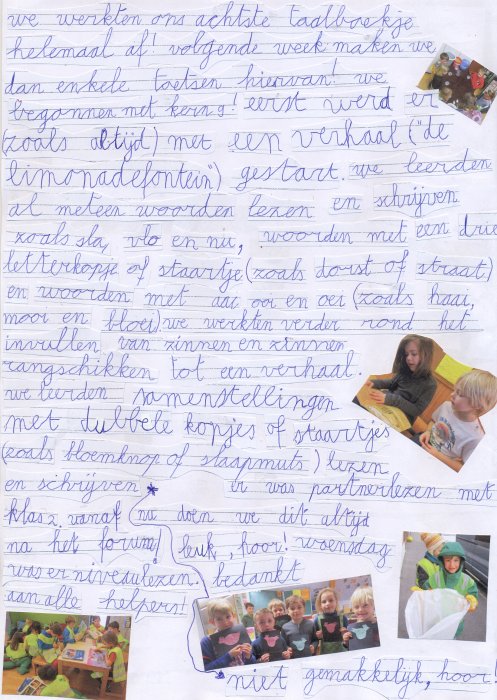 we werkten ons achtste taalboekje
helemaal af! volgende week maken we
dan enkele toetsen hiervan! we
begonnen met kern 9! eerst werd er
(zoals altijd) met een verhaal ("de
limonadefontein") gestart. we leerden
al meteen woorden lezen en schrijven
zoals sla, vlo en nu, woorden met een drie
letterkopje of staartje (zoals dorst of straat)
en woorden met aai ooi en oei (zoals haai,
mooi en bloei) we werkten verder rond het
invullen van zinnen en zinnen
rangschikken tot een verhaal.
we leerden samenstellingen
met dubbele kopjes of staartjes
(zoals bloemknop of slaapmuts) lezen
en schrijven * er was partnerlezen met
klas 2. vanaf nu doen we dit altijd
na het forum! leuk, hoor! woensdag
was er niveaulezen. bedankt
aan alle helpers!
niet gemakkelijk, hoor!